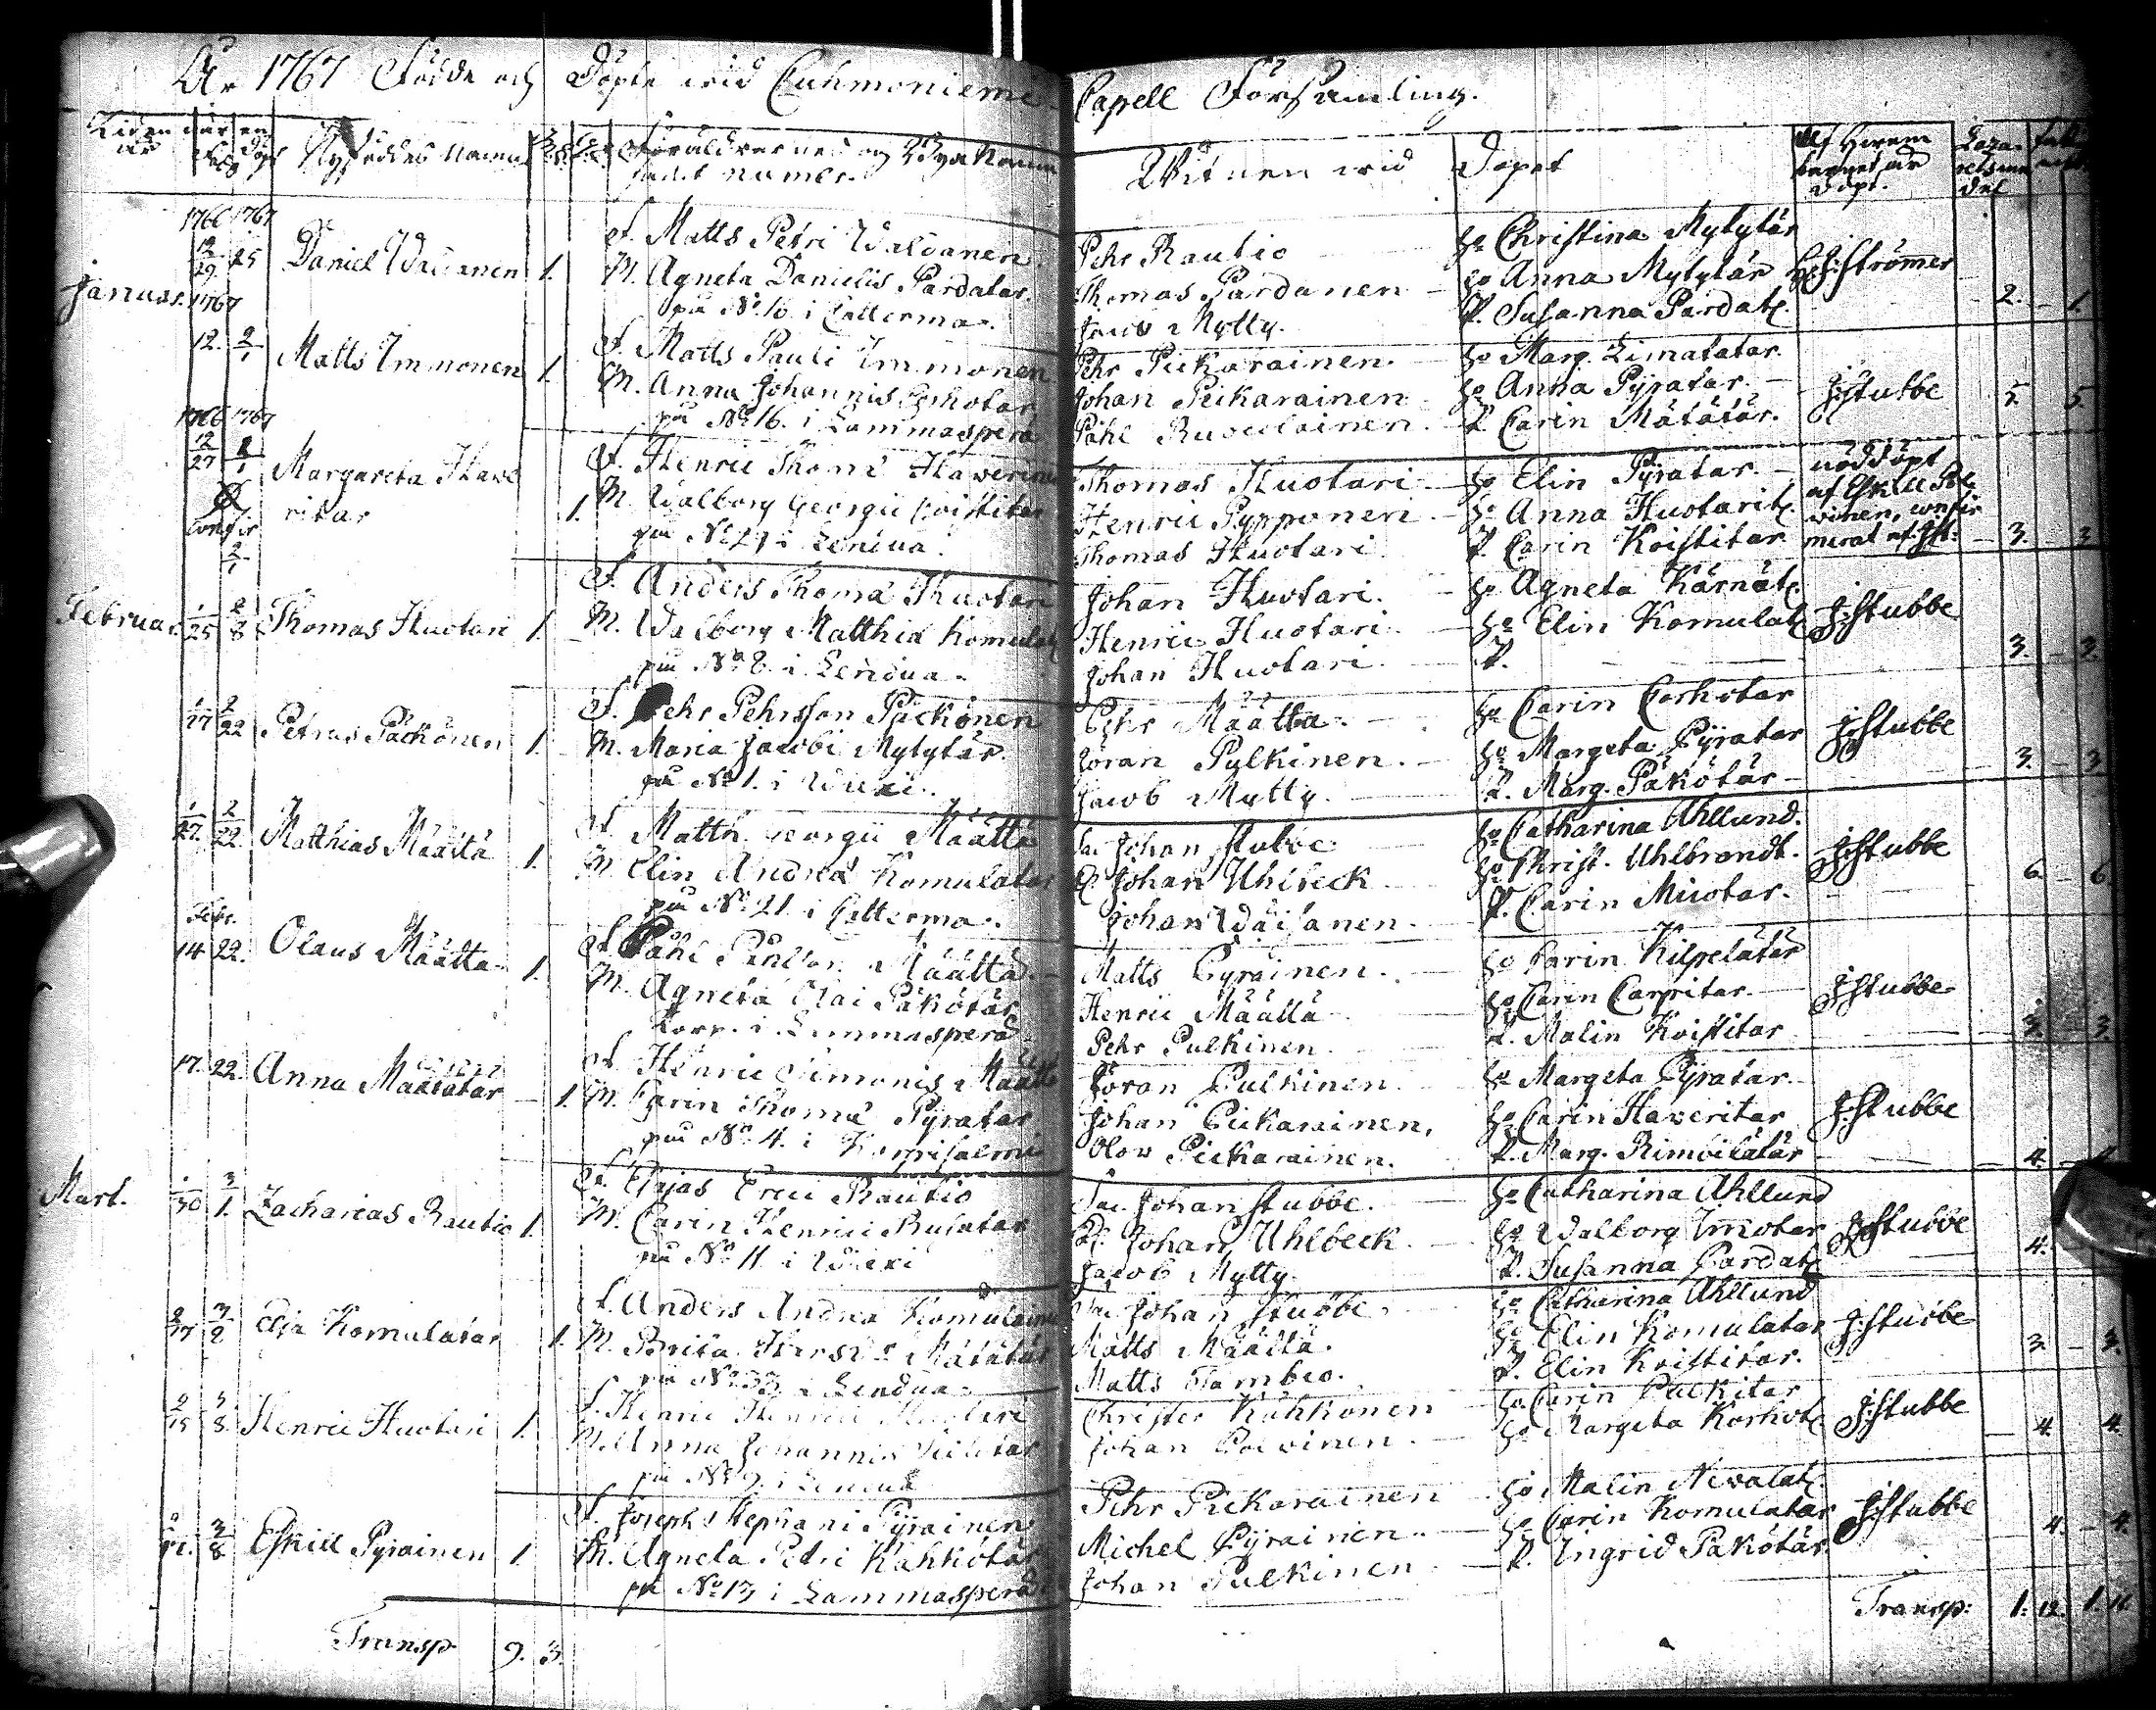 År 1767 Födde och Döpte wid Cuhmoniemi Capell Församling.
Tiden när en är
född döpt
Nyföddes Namn
Föräldrarnes och Byar Namn
samt numer.
Witnen wid Dopet
Af Hwem barnet är döpt.
1766 1767
12/29 25 Daniel Wäisänen 1.
Januar. 1767
F. Matts Petri Waisanen
M. Agneta Danielis Pardatar.
på No 10 i Catterma.
Pehr Rautio
Thomas Pardanen
Jacob Mytty.
Ho Christina Mytytär
Ho Anna Mytytär
P. Susanna Pardat.
Strömer
2. 1.
12. 2/1 Matts Immonen 1.
F. Matts Pauli Immonen
M. Anna Johannis Corhotar
på No 16. i Lammasperä
Pehr Pickarainen.
Johan Pickarainen
Påhl Rusulainen.
Ho Marg. Limatatar.
Ho Anna Pyratar.
P. Carin Mätätär.
J:Stubbe
5. 5.
1766 1767
12/27 1/1 Margareta Have
ritar 1.
Confir
2/1
F. Henric Thomæ Haverinen
M. Walborg Georgii Koistitar
på No 29 i Lendua.
Thomas Huotari
Henric Pypponen
Thomas Huotari
Ho Elin Pyratar.
Ho Anna Huotarit.
P. Carin Koistitar
nöddöpt
af Eskill Pol
winen, confir
merat af J:St:
3. 3
Februar. 1/25 2/8 Thomas Huotari 1.
F. Anders Thomæ Huotari
M. Walborg Matthiæ Komulat
på No 8. i Lendua.
Johan Huotari.
Henric Huotari
Johan Huotari.
Ho Agneta Kärnät.
Ho Elin Komulat
P.
J:Stubbe
3. 3.
1/27 2/22 Petrus Päckönen 1.
F. Pehr Pehrsson Päckönen
M. Maria Jacobi Mytytär.
på No 1. i Wiexi.
Pehr Määttä.
Jöran Pulkinen.
Jacob Mytty.
Ho Carin Corhotar
Ho Margeta Pyratar
P. Marg. Päkötär
J:Stubbe
3. 3
1/27. 2/22 Matthias Määttä 1.
F. Matth. Georgii Määttä
M. Elin Andreæ Komulatar
på No 21. i Catterma.
Sac. Johan Stubbe
Johan Uhlbeck
Johan Wäisänen.
Ho Catharina Ahllund.
Ho Christ. Uhlbrandt.
P. Carin Miuotar.
J:Stubbe
6. 6.
Febr.
14 22. Olaus Määttä 1.
F. Påhl Påulson Määttä
M. Agneta Olai Päkötär
Torp. i Lammasperä
Matts Pyrainen.
Henric Määttä
Pehr Pulkinen.
Ho Carin Kilpelätär
Ho Carin Carpitar.
P. Malin Koistitar
J:Stubbe
3. 3.
17. 22. Anna Määtätar 1.
F. Henric Simonis Määttä
M. Carin Thomæ Pyratar
på No 4. i Korpisalmi
Jöran Pulkinen
Johan Pickarainen,
Olov Pickarainen.
Ho Margeta Pyratar.
Ho Carin Haveritar
P. Marg. Rimbilätär
J:Stubbe
4.
Mart. 1/30 3/1. Zacharias Rautio 1.
F. Esajas Erici Rautio
M. Carin Henrici Rusatar
på No 11 i Wiexi
Sac. Johan Stubbe.
Johan Uhlbeck
Jacob Mytty.
Ho Catharina Ahllund
Ho Walborg Imotar
P. Susanna Pardat.
J:Stubbe
4.
2/17 3/2 Elja Komulatar 1.
F. Anders Andreæ Komulainen
M. Brita Mätätär
på No 33 i Lendua.
Sac. Johan Stubbe.
Matts Määttä.
Matts Tambio.
Ho Catharina Ahllund
Ho Elin Komulatar
P. Elin Koistitar.
J:Stubbe
3. 3.
2/15 3/8. Henric Huotari 1.
F. Henric Henrici Huotari
M. Anna Johannis
på No 9. i Lendua
Christer Kähkönen
Johan Polvinen.
Ho Carin Pulkitar
Ho Margeta Korhot.
J:Stubbe
4. 4.
3/8 Eskill Pyrainen 1.
F. Joseph Stephani Pyrainen
M. Agneta Petri Kähkötär
på No 13 i Lammasperä
Pehr Pickarainen
Michel Pyrainen.
Johan Pulkinen
Ho Malin Nevalat.
Ho Carin Komulatar
P. Ingrid Päkötär.
J:Stubbe
4. 4.
Transp. 9. 3.
Transp: 1. 12. 1.